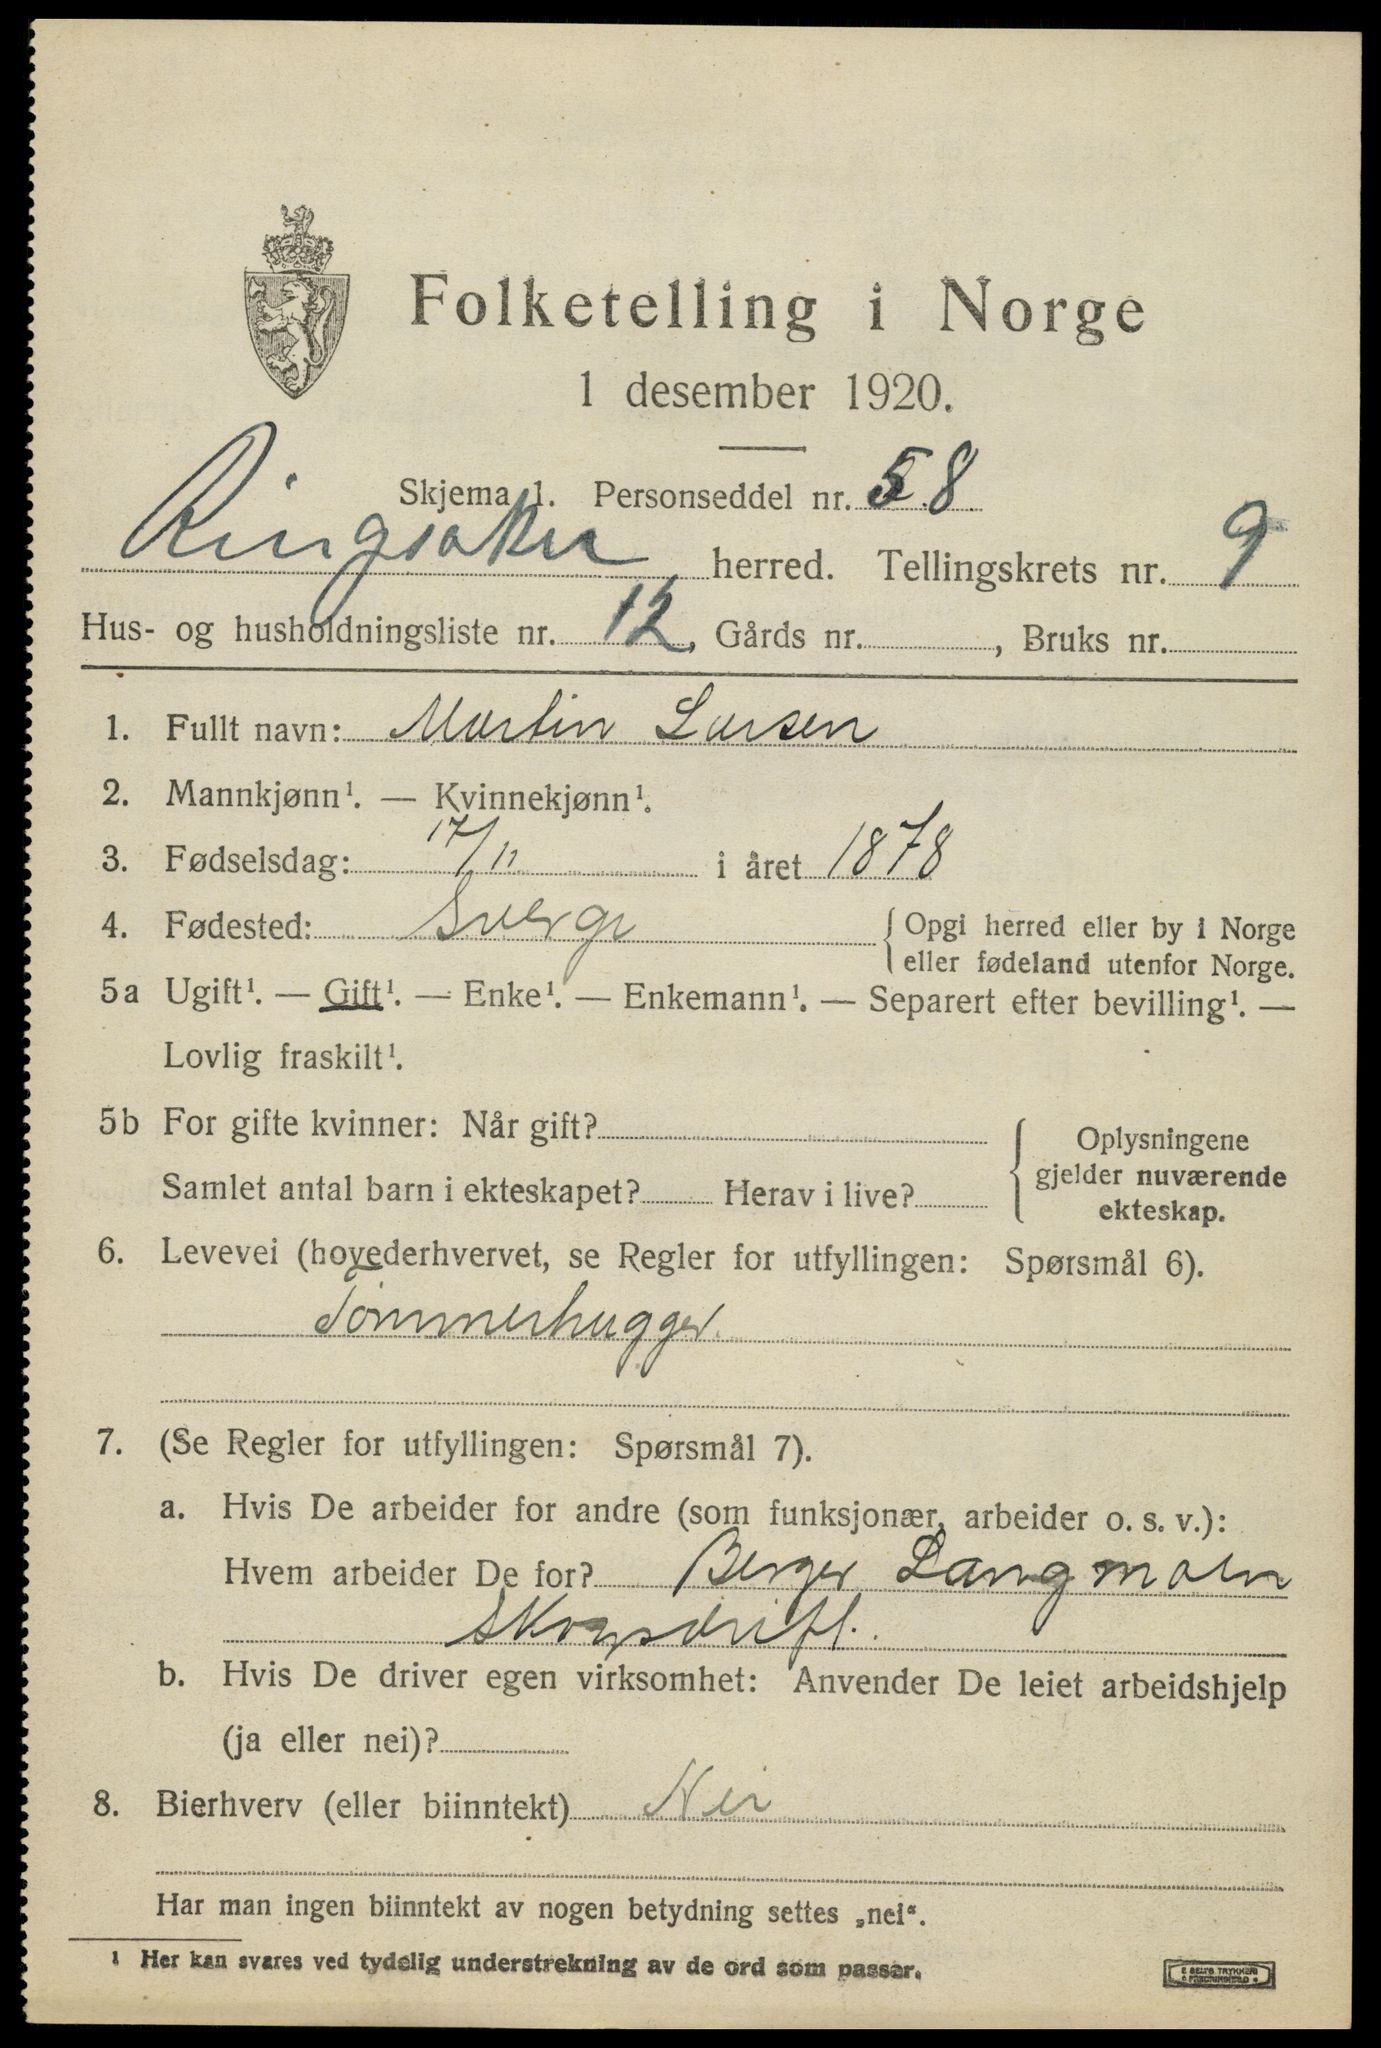 Folketelling i Norge
1 desember 1920.
Skjema 1. Personseddel nr. 58
Ringsaker herred. Tellingskrets nr. 9
Hus- og husholdningsliste nr. 12, Gårds nr. , Bruks nr.
1. Fullt navn: Martin Larsen
2. Mannkjønn¹. — Kvinnekjønn¹.
3. Fødselsdag: 17/11 i året 1878
4. Fødested: Sverge { Opgi herred eller by i Norge
eller fødeland utenfor Norge.
5a Ugift¹. — Gift¹. — Enke¹. — Enkemann¹. — Separert efter bevilling¹. —
Lovlig fraskilt¹.
5b For gifte kvinner: Når gift?
Samlet antal barn i ekteskapet? Herav i live?
{ Oplysningene
gjelder nuværende
ekteskap.
6. Levevei (hovederhvervet, se Regler for utfyllingen: Spørsmål 6).
Tömmerhugger.
7. (Se Regler for utfyllingen: Spørsmål 7).
a. Hvis De arbeider for andre (som funksjonær, arbeider o. s. v.):
Hvem arbeider De for? Berger Langmoen
Skogsdrift.
b. Hvis De driver egen virksomhet: Anvender De leiet arbeidshjelp
(ja eller nei)?
8. Bierhverv (eller biinntekt) Nei
Har man ingen biinntekt av nogen betydning settes „nei“.
¹ Her kan svares ved tydelig understrekning av de ord som passer.